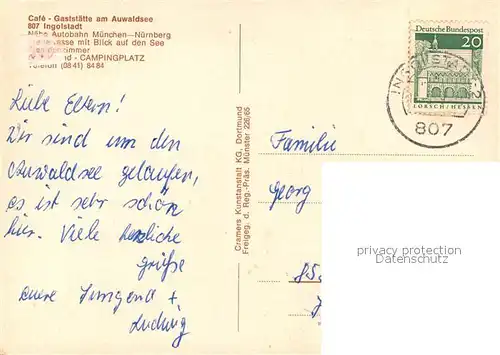 Café - Gaststätte am Auwaldsee
807 Ingolstadt
Nähe Autobahn München—Nürnberg
mit Blick auf den See
CAMPINGPLATZ
Telefon (08 41) 84 84
Liebe Eltern!
Wir sind um den
Auwaldsee gelaufen,
es ist sehr schön
hier. Viele herzliche
grüße
eure Irmgard +
Ludwig
Cramers Kunstanstalt KG, Dortmund
Freigeg. d. Reg.-Präs. Münster 228/65
Deutsche Bundespost
20
LORSCH/HESSEN
INGOLSTADT 2
807
Familie
Georg
privacy protection
Datenschutz